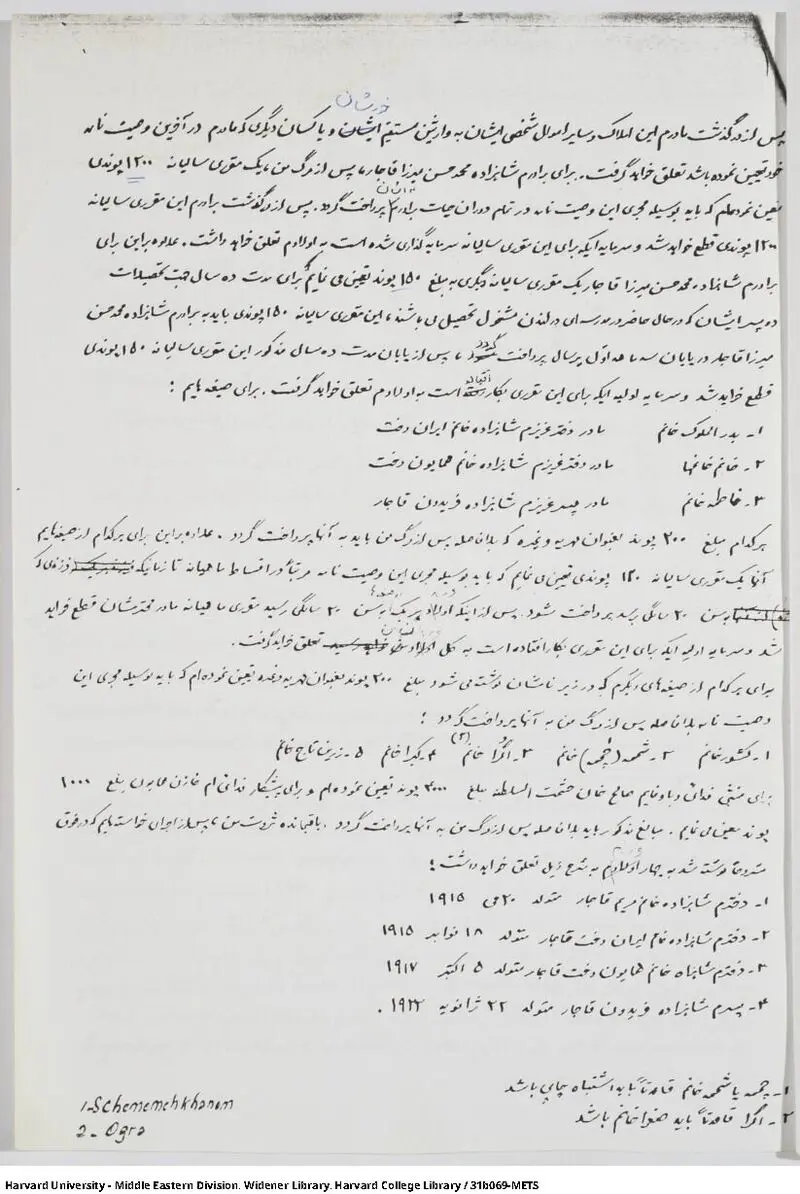 خودشان
پس از درگذشت مادرم این املاک و سایر اموال شخصی ایشان به وارثین مستقیم ایشان و یا کسان دیگری که مادرم در آخرین وصیت نامه
خود تعیین نموده باشد تعلق خواهد گرفت. برای برادرم شاهزاده محمد حسن میرزا قاجار، پس از مرگ من، یک مقرری سالیانه ۱۲۰۰ پوندی
معین نموده‌ام که باید بوسیله مجری این وصیت نامه در تمام دوران حیات برادرم پرداخت گردد. پس از درگذشت برادرم این مقرری سالیانه
۱۲۰۰ پوندی قطع خواهد شد و سرمایه ایکه برای این مقرری سالیانه سرمایه گذاری شده است به اولادم تعلق خواهد داشت. علاوه براین برای
برادرم شاهزاده محمد حسن میرزا قاجار یک مقرری سالیانه دیگری به مبلغ ۱۵۰ پوند تعیین می نمایم برای مدت ده سال جهت تحصیلات
دو پسر ایشان که در حال حاضر در مدرسه ای در لندن مشغول تحصیل می باشند، این مقرری سالیانه ۱۵۰ پوندی باید به برادرم شاهزاده محمد حسن
میرزا قاجار در پایان سه ماهه اول هر سال پرداخت گردد، پس از پایان مدت ده سال مذکور این مقرری سالیانه ۱۵۰ پوندی
قطع خواهد شد و سرمایه اولیه ایکه برای این مقرری بکار افتاده است به اولادم تعلق خواهد گرفت. برای صیغه هایم:
۱- بدرالملوک خانم مادر دختر عزیزم شاهزاده خانم ایران دخت
۲- خانم خانمها مادر دختر عزیزم شاهزاده خانم همایون دخت
۳- فاطمه خانم مادر پسر عزیزم شاهزاده فریدون قاجار
هرکدام مبلغ ۲۰۰ پوند بعنوان مهریه وغیره که بلافاصله پس از مرگ من باید به آنها پرداخت گردد. علاوه براین برای هرکدام از صیغه هایم
آنها یک مقرری سالیانه ۱۲۰ پوندی تعیین می نمایم که باید بوسیله مجری این وصیت نامه مرتباً در اقساط ماهیانه تا زمانیکه فرزندی که
بسن ۲۰ سالگی برسد پرداخت شود. پس از اینکه اولاد هر یک بسن ۲۰ سالگی رسید مقرری ماهیانه مادر محترمشان قطع خواهد
شد و سرمایه اولیه ایکه برای این مقرری بکار افتاده است به کل تعلق خواهد گرفت.
برای هرکدام از صیغه های دیگرم که در زیر نامشان نوشته می شود مبلغ ۲۰۰ پوند بعنوان مهریه وغیره تعیین نموده ام که باید بوسیله مجری این
وصیت نامه بلافاصله پس از مرگ من به آنها پرداخت گردد:
۱- کشور خانم ۲- شمسه (چمه) خانم ۳- اگرا خانم (۲) ۴- کبرا خانم ۵- زرین تاج خانم
برای منشی فدائی و باوفایم صالح خان حشمت السلطنه مبلغ ۳۰۰۰ پوند تعیین نموده ام و برای پیشکار فدائی ام خازن همایون مبلغ ۱۰۰۰
پوند معین می نمایم. مبالغ مذکور باید بلافاصله پس از مرگ من به آنها پرداخت گردد. باقیمانده ثروت من، پس از اجرای خواسته هایم که در فوق
مشروحاً نوشته شد به چهار اولادم به شرح ذیل تعلق خواهد داشت:
۱- دخترم شاهزاده خانم مریم قاجار متولد ۲۰ می ۱۹۱۵
۲- دخترم شاهزاده خانم ایران دخت قاجار متولد ۱۸ نوامبر ۱۹۱۵
۳- دخترم شاهزاه خانم همایون دخت قاجار متولد ۵ اکتبر ۱۹۱۷
۴- پسرم شاهزاده فریدون قاجار متولد ۲۲ ژانویه ۱۹۲۲.
۱- چمه یا شمسه خانم قاعدتاً باید اشتباه چاپی باشد
۲- اگرا قاعدتاً باید صغرا خانم باشد
1-Schememehkhanem
2- Ogra
Harvard University - Middle Eastern Division. Widener Library. Harvard College Library / 31b069-METS